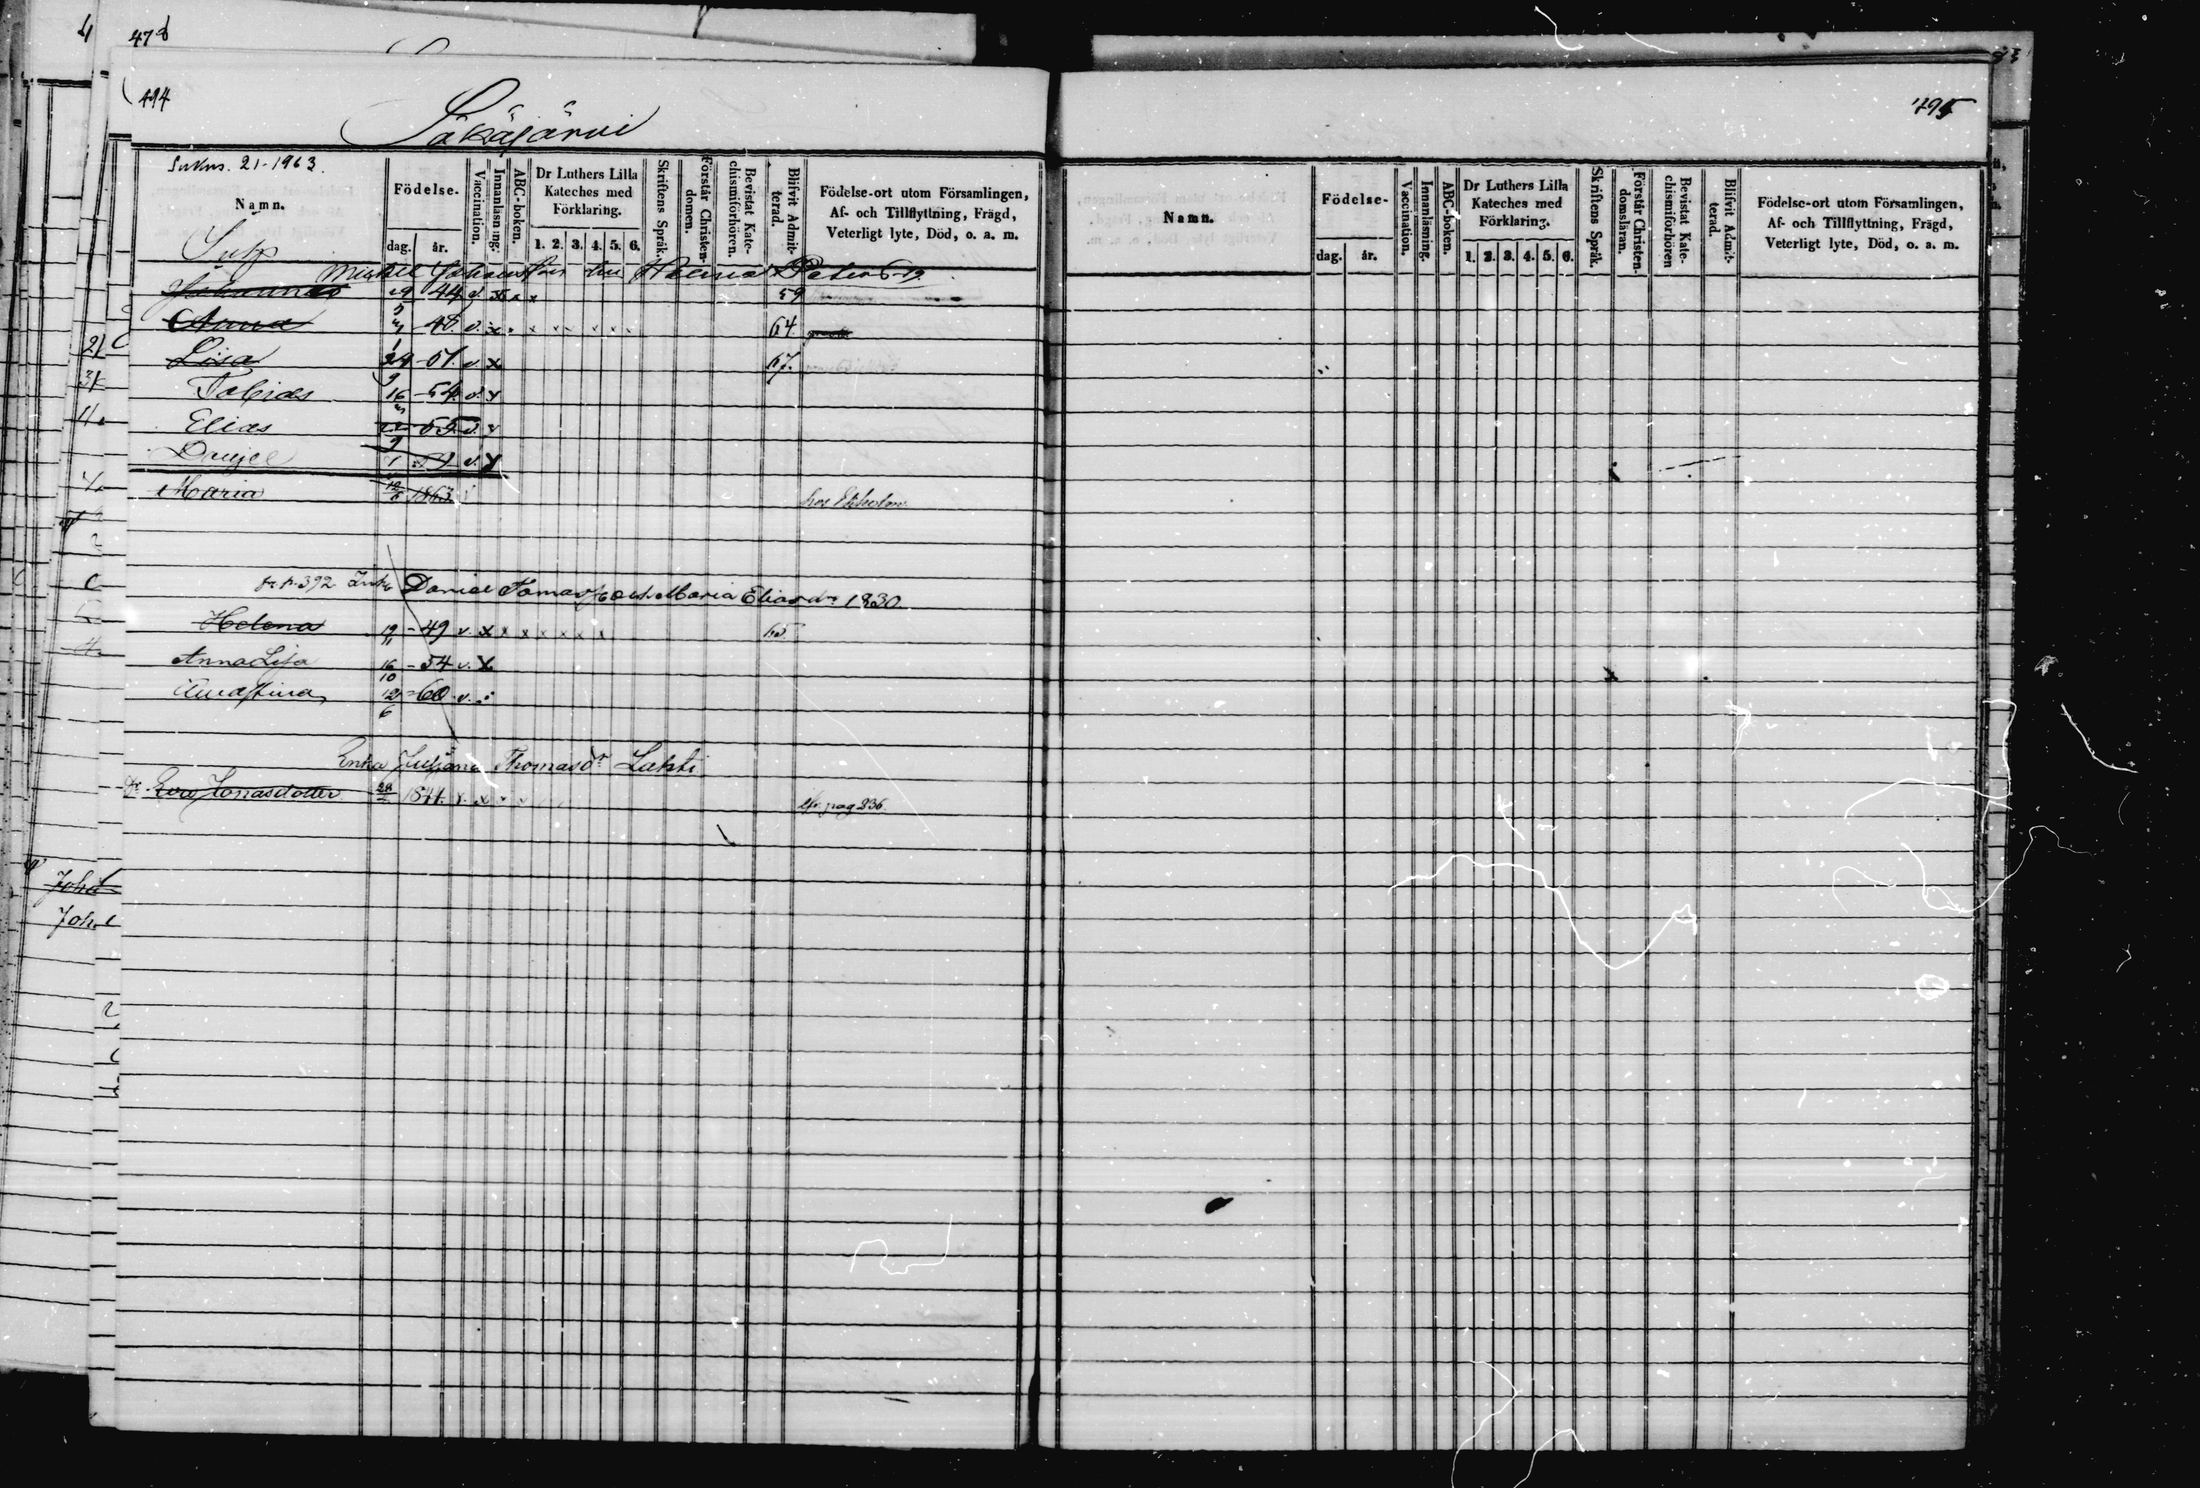 478
494
Säkäjärvi
Sukus. 21-1963.
Namn.
Födelse-
dag. år.
Vaccination.
Innanläsning.
ABC-boken.
Dr Luthers Lilla Kateches med Förklaring.
1. 2. 3. 4. 5. 6.
Skriftens Språk.
Förstår Christendomen.
Bevistat Katechismiförhören.
Blifvit Admitterad.
Födelse-ort utom Församlingen,
Af- och Tillflyttning, Frägd,
Veterligt lyte, Död, o. a. m.
Inh
Johannes 29 44 v. x x 59
Anna 48. v. x x x x x x x 64.
Lisa 24 51. v. x 67.
Tobias 16 54 v. x
Elias 55 v. x
Daniel v. x
Maria 1863
fr. p. 392 Inh Daniel Tomasson Maria Eliasdr 1830
Helena 19/11 -49 v. x x x x x x x 65.
Anna Lisa 16/10 -54 v. x
12/6 -60 v.
Enka Juljana Thomasdr Lahti
Eva Jonasdotter 1841. v. x x x pag 236.
Joh
795
Namn.
Födelse-
dag. år.
Vaccination.
Innanläsning.
ABC-boken.
Dr Luthers Lilla
Kateches med
Förklaring.
1. 2. 3. 4. 5. 6.
Skriftens Språk.
Förstår Christendomsläran.
Bevistat Katechismiförhören
Blifvit Admitterad.
Födelse-ort utom Församlingen,
Af- och Tillflyttning, Frägd,
Veterligt lyte, Död, o. a. m.